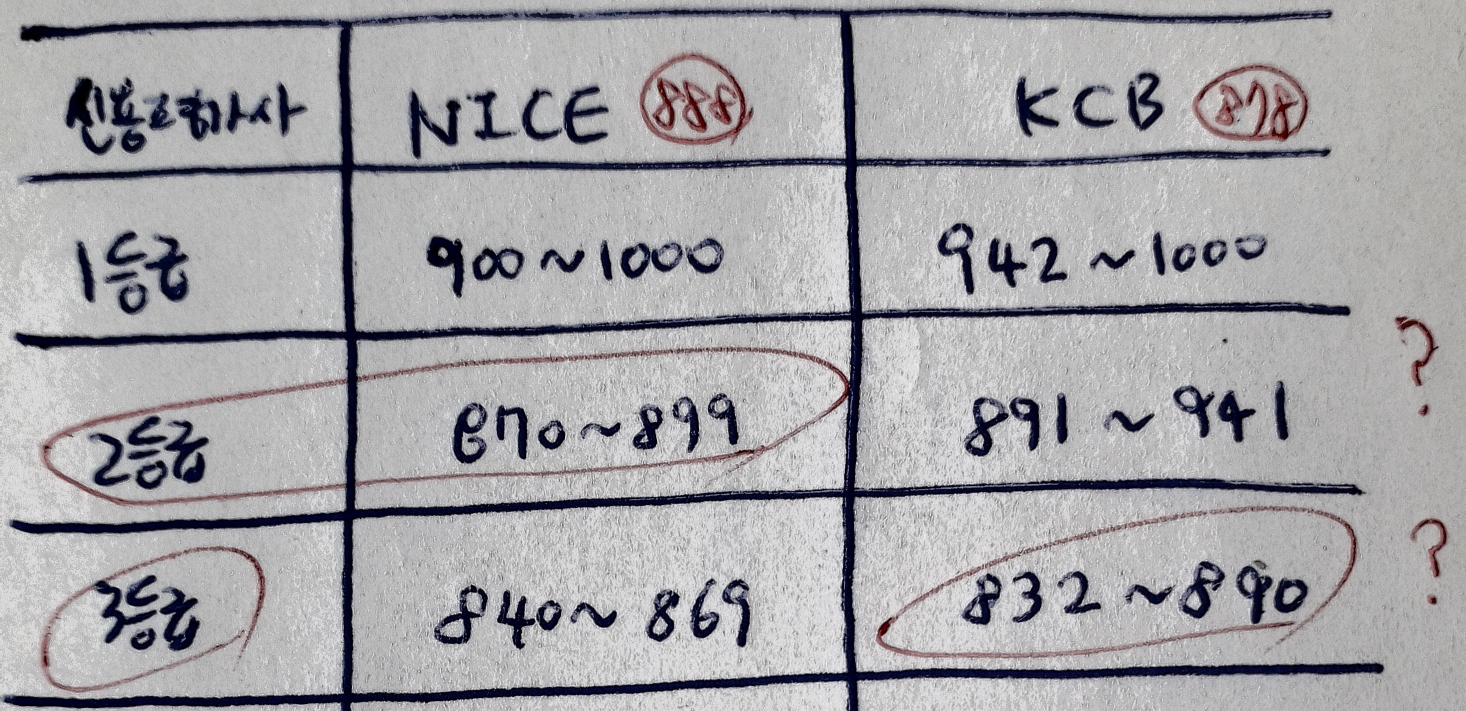 신용조회사 NICE 888 KCB 878
1등급 900~1000 942~1000
2등급 870~899 891~941 ?
3등급 840~869 832~890 ?